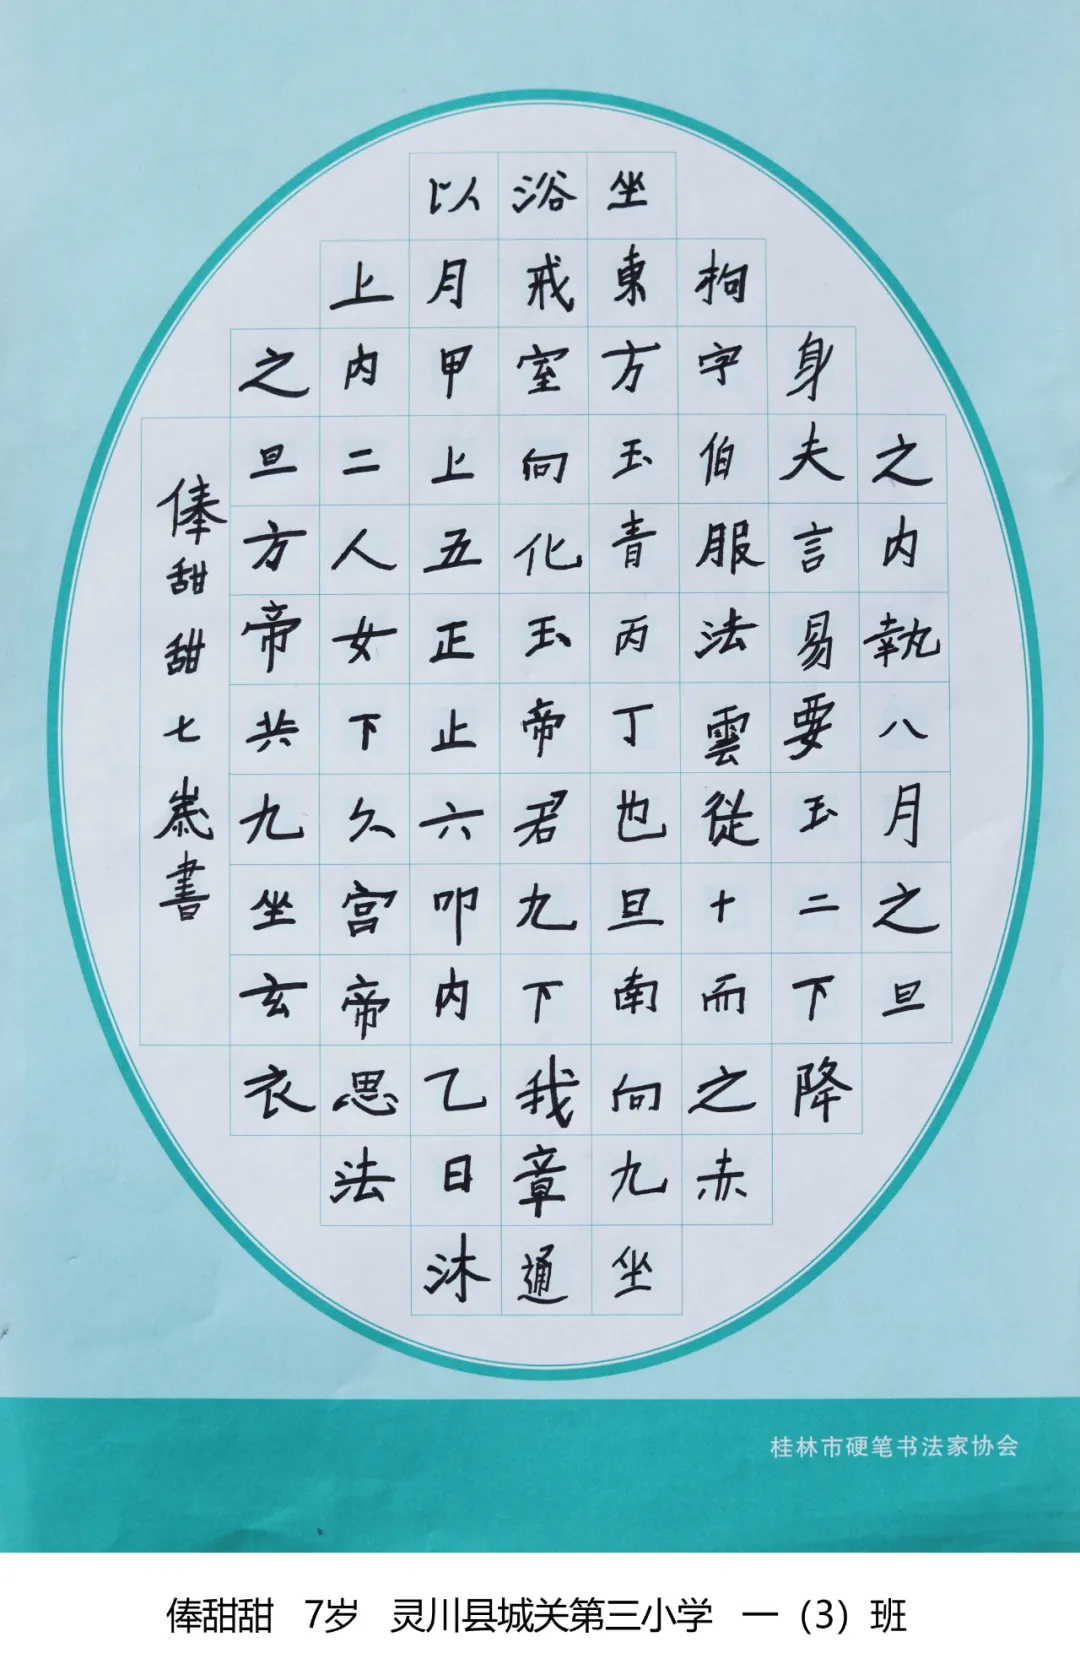 之内執八月之旦
身夫言易要玉二下降
拘字伯服法雲從十而之赤
坐東方玉青丙丁也旦南向九坐
浴戒室向化玉帝君九下我章通
以月甲上五正止六叩内乙日沐
上内二人女下久宫帝思法
之旦方帝共九坐玄衣
俸甜甜七歲書
桂林市硬笔书法家协会
俸甜甜 7岁 灵川县城关第三小学 一（3）班